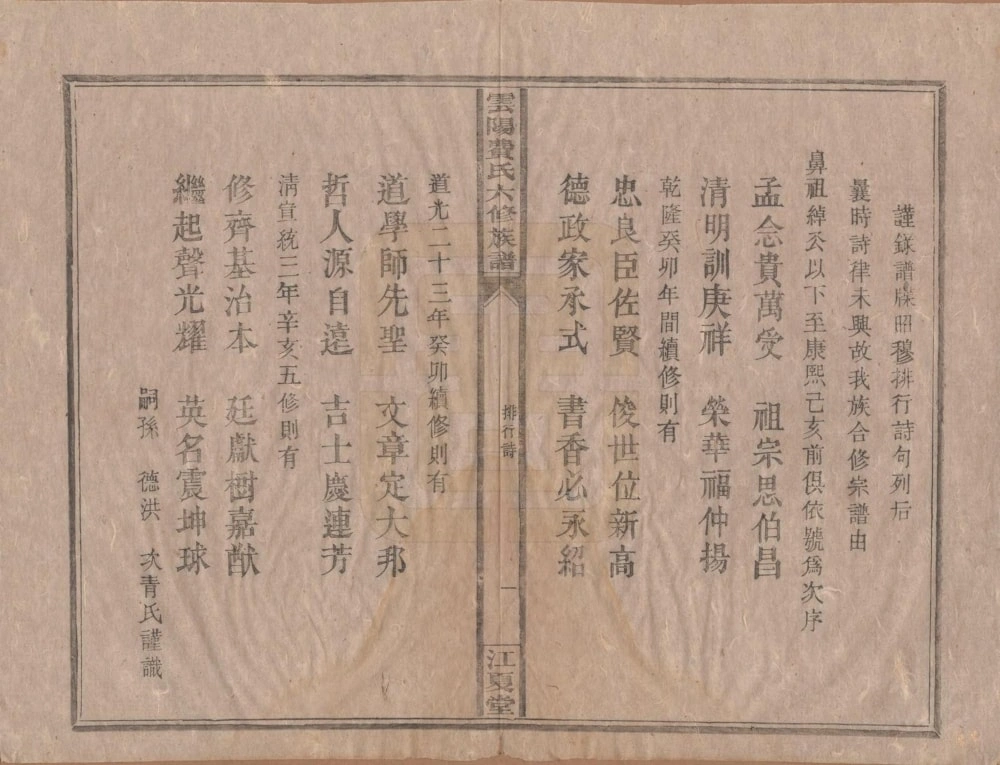 謹錄譜牒昭穆排行詩句列后
曩時詩律未興故我族合修宗譜由
鼻祖綽公以下至康熙己亥前俱依號爲次序
孟念貴萬受　祖宗思伯昌
清明訓庚祥　榮華福仲揚
乾隆癸卯年間續修則有
忠良臣佐賢　俊世位新高
德政家承式　書香必永紹
雲陽費氏六修族譜
排行詩
一
江夏堂
道光二十三年癸卯續修則有
道學師先聖　文章定大邦
哲人源自遠　吉士慶連芳
清宣統三年辛亥五修則有
修齊基治本　廷獻樹嘉猷
繼起聲光耀　英名震坤球
嗣孫　德洪　次青氏謹識